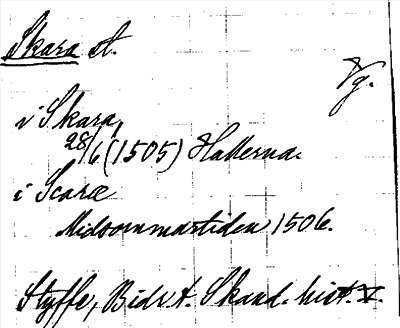 Skara st.
Vg.
i Skara,
28/6 (1505) Hallerna.
i Scaræ
Midsommartiden 1506.
Styffe, Bidr. t. Skand. hist. V.